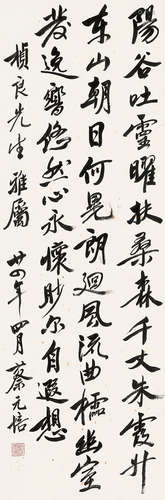 陽谷吐靈曜扶桑森千丈朱霞升
東山朝日何晃朗迴風流曲櫺幽室
發逸響悠然心永懷眇尔自遐想
楨良先生雅屬 廿四年四月蔡元培